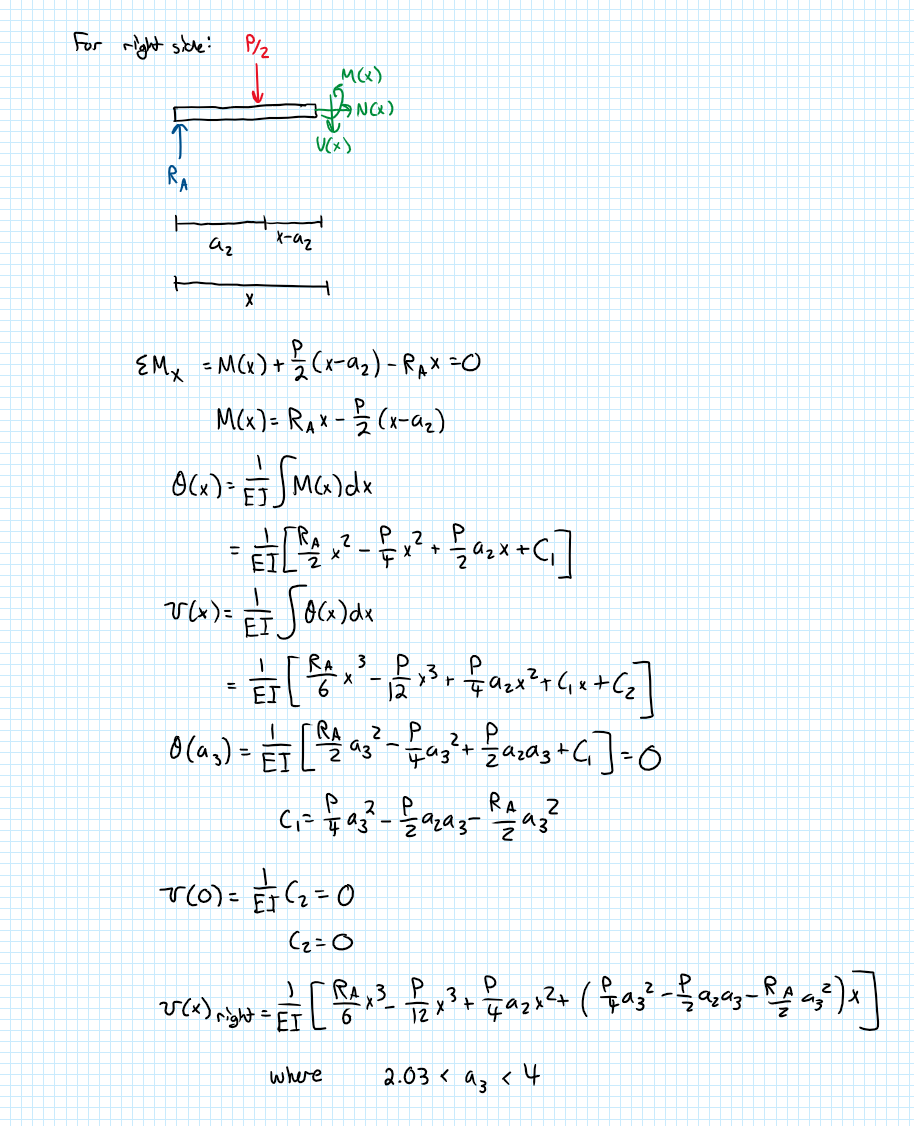 For right side:
P/2
M(x)
N(x)
V(x)
R_A
a_2 x-a_2
x
ΣM_x = M(x) + P/2 (x-a_2) - R_A x = 0
M(x) = R_A x - P/2 (x-a_2)
θ(x) = 1/EI ∫ M(x) dx
= 1/EI [ R_A/2 x^2 - P/4 x^2 + P/2 a_2 x + C_1 ]
v(x) = 1/EI ∫ θ(x) dx
= 1/EI [ R_A/6 x^3 - P/12 x^3 + P/4 a_2 x^2 + C_1 x + C_2 ]
θ(a_3) = 1/EI [ R_A/2 a_3^2 - P/4 a_3^2 + P/2 a_2 a_3 + C_1 ] = 0
C_1 = P/4 a_3^2 - P/2 a_2 a_3 - R_A/2 a_3^2
v(0) = 1/EI C_2 = 0
C_2 = 0
v(x)_right = 1/EI [ R_A/6 x^3 - P/12 x^3 + P/4 a_2 x^2 + ( P/4 a_3^2 - P/2 a_2 a_3 - R_A/2 a_3^2 ) x ]
where 2.03 < a_3 < 4